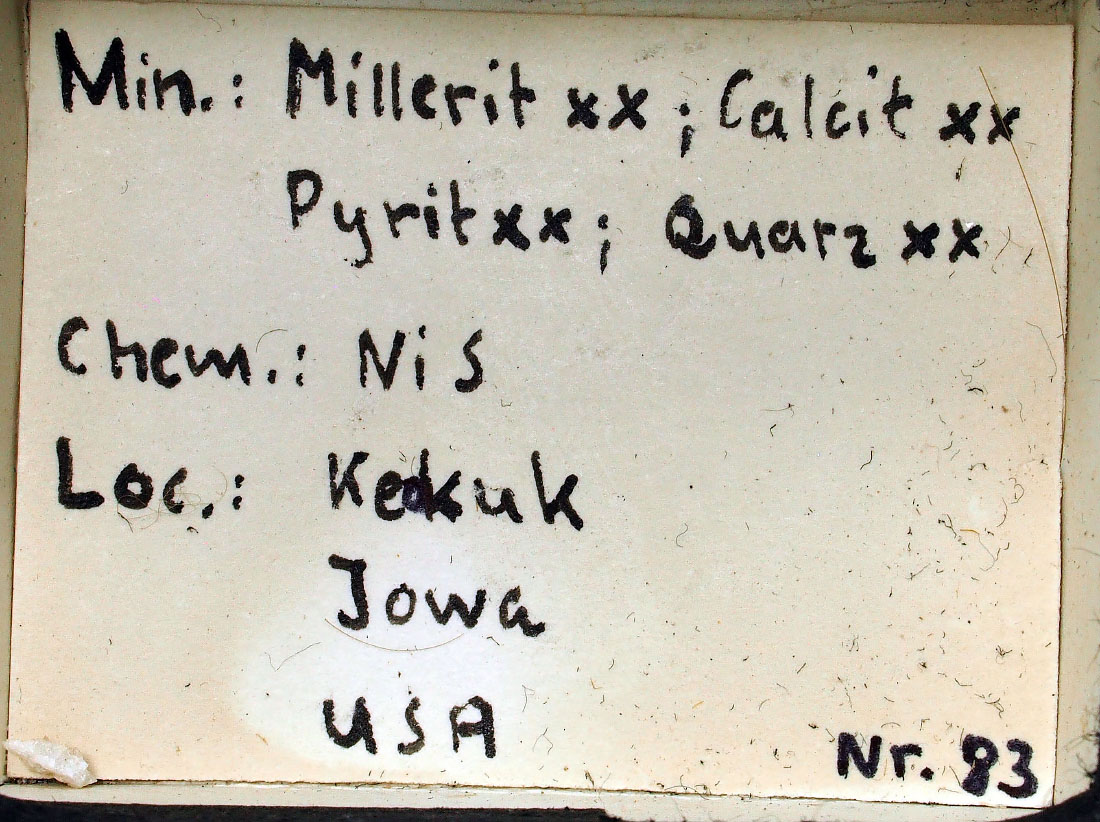 Min.: Millerit xx ; Calcit xx
Pyrit xx ; Quarz xx
Chem.: NiS
Loc.: Keokuk
Jowa
USA
Nr. 83